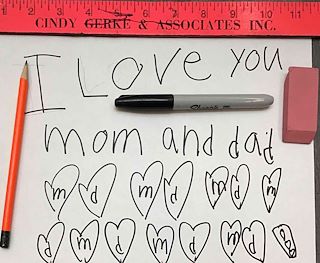 2 3 4 5 6 7 8 9 10 11
CINDY GERKE & ASSOCIATES INC.
I Love you
Sharpie
mom and dad
m d m d m d m
d m d m d m d